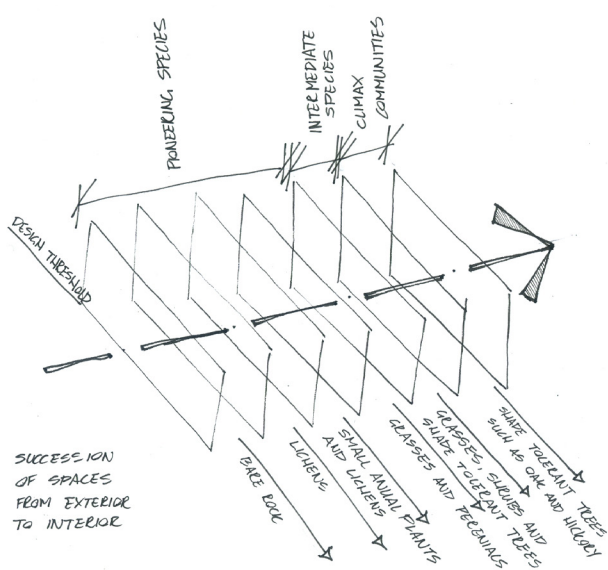 PIONEERING SPECIES
INTERMEDIATE
SPECIES
CLIMAX
COMMUNITIES
DESIGN THRESHOLD
SUCCESSION
OF SPACES
FROM EXTERIOR
TO INTERIOR
BARE ROCK
LICHENS
SMALL ANUAL PLANTS
AND LICHENS
GRASSES AND PERENIALS
GRASSES, SHRUBS AND
SHADE TOLERANT TREES
SHADE TOLERANT TREES
SUCH AS OAK AND HICKORY